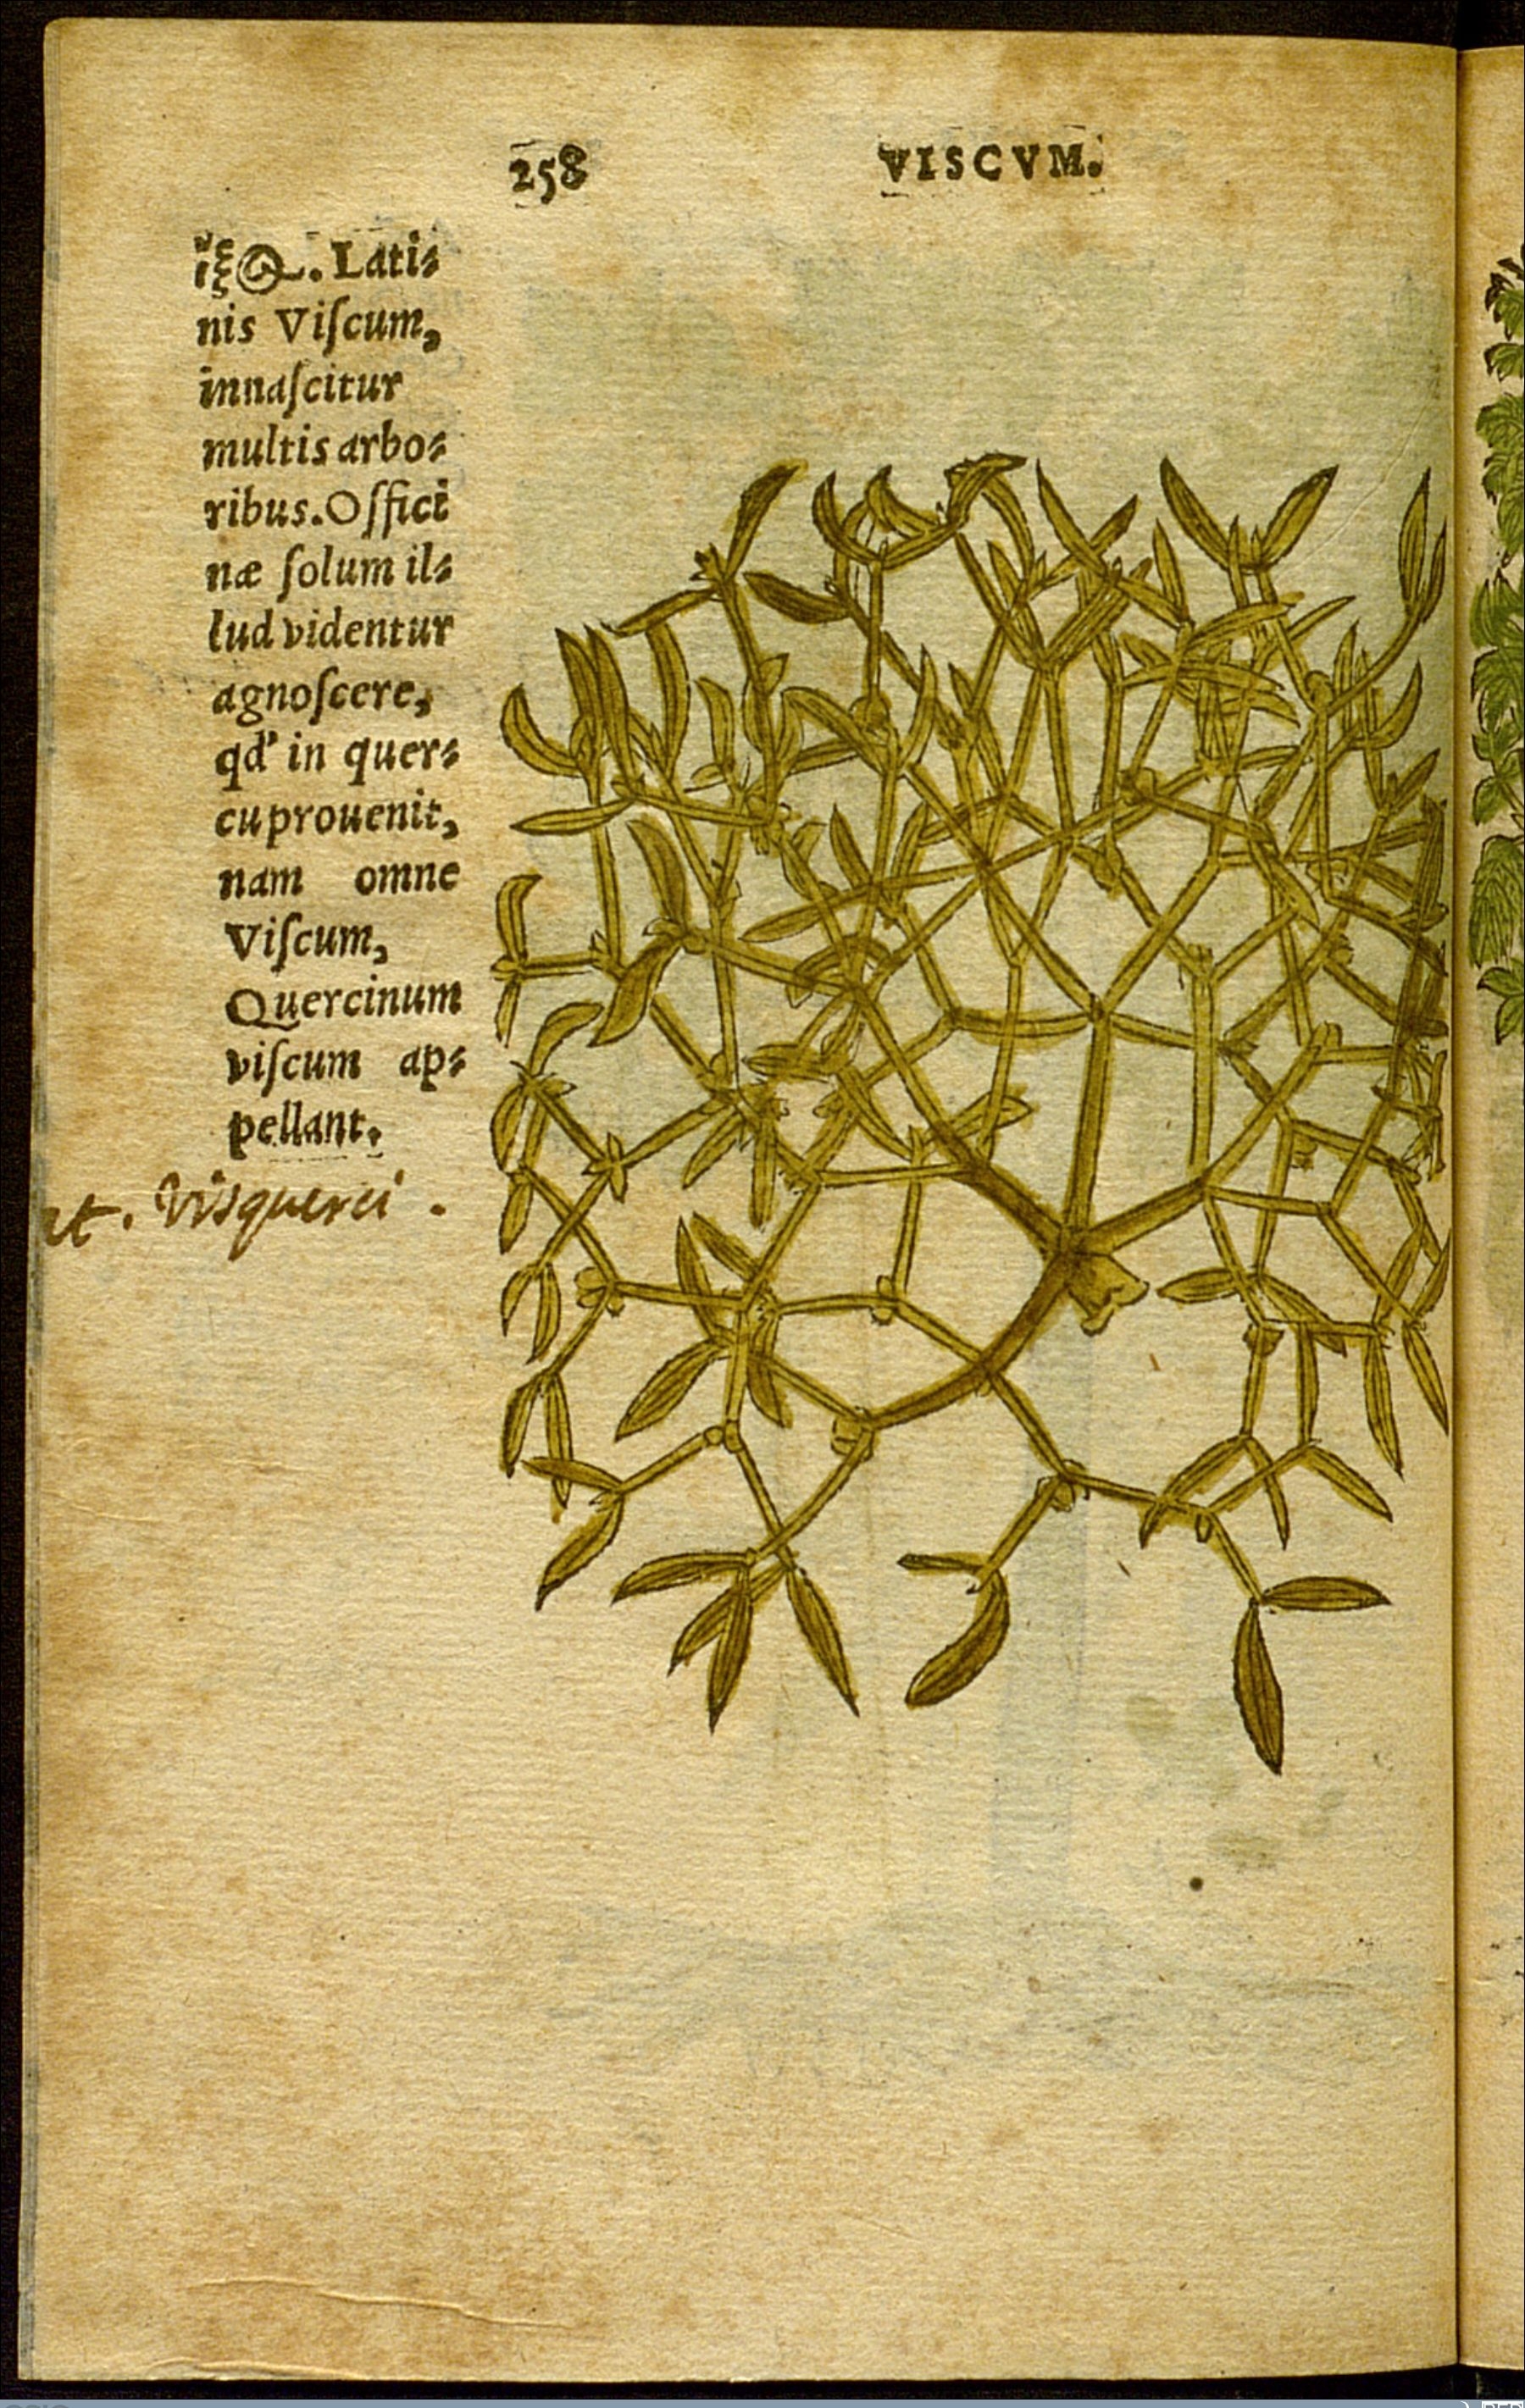 258 VISCVM.
ἰξὸς. Lati⸗
nis Viſcum,
innaſcitur
multis arbo⸗
ribus. Offici
næ ſolum il⸗
lud videntur
agnoſcere,
qd' in quer⸗
cu prouenit,
nam omne
Viſcum,
Quercinum
viſcum ap⸗
pellant.
it. Visquerci.